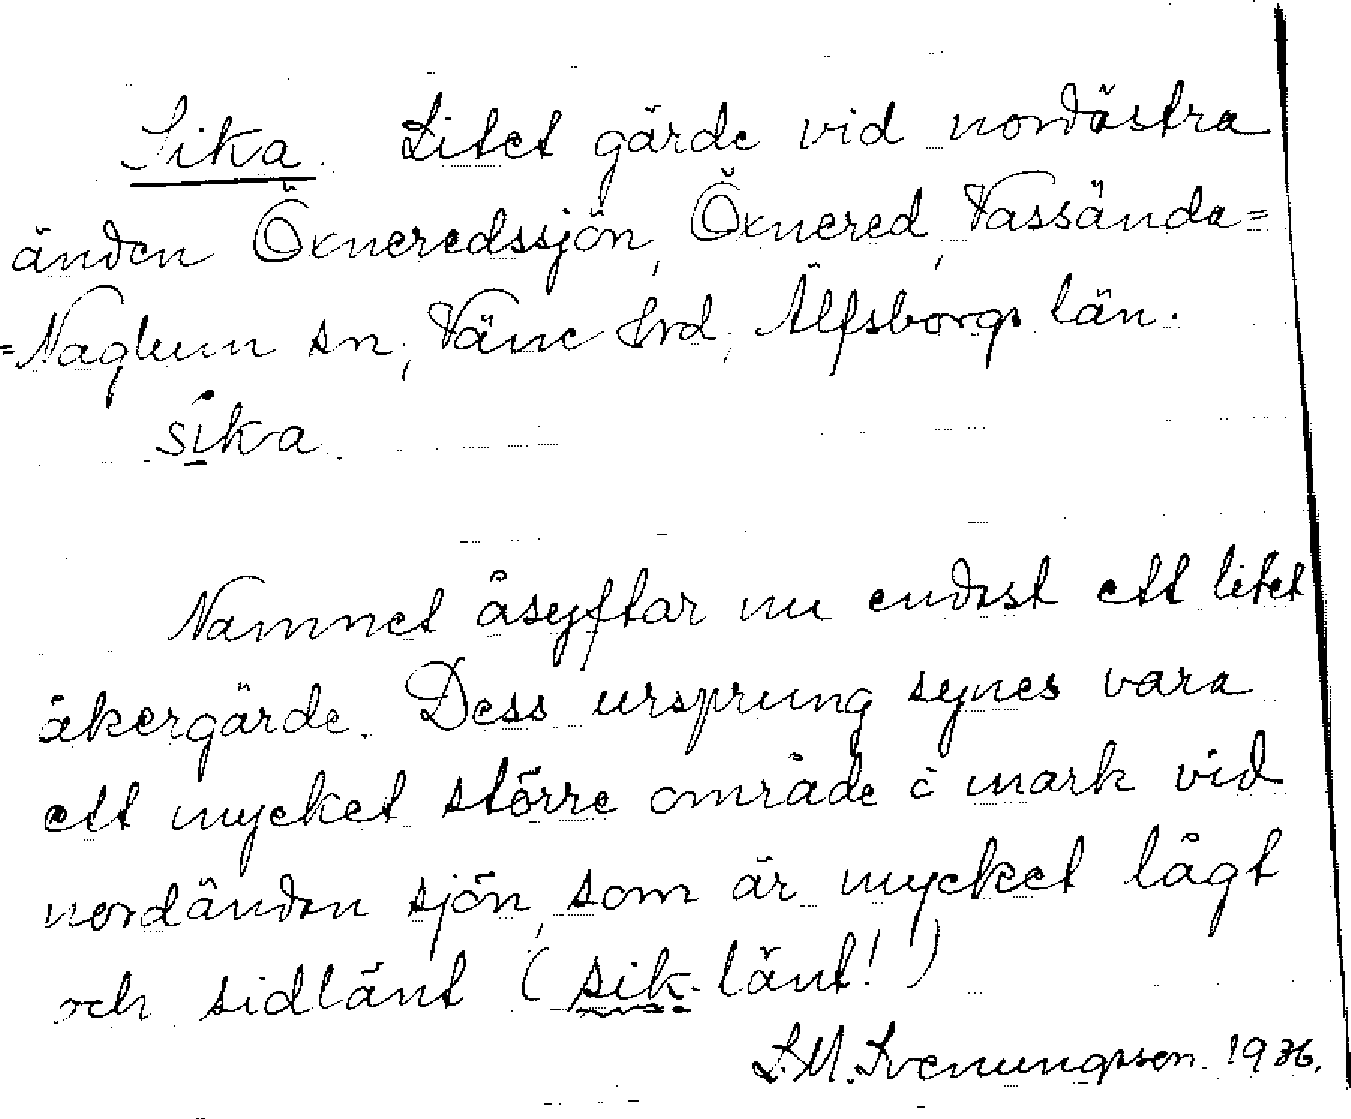 Sika. Litet gärde vid nordöstra
änden Öxneredssjön, Öxnered, Vassända=
=Naglum sn; Väne hrd, Älfsborgs län.
sika
Namnet åsyftar nu endast ett litet
åkergärde. Dess ursprung synes vara
ett mycket större område å mark vid
nordändan sjön, som är mycket lågt
och sidlänt (sik-länt!)
S.M. Svenungsson. 1936.